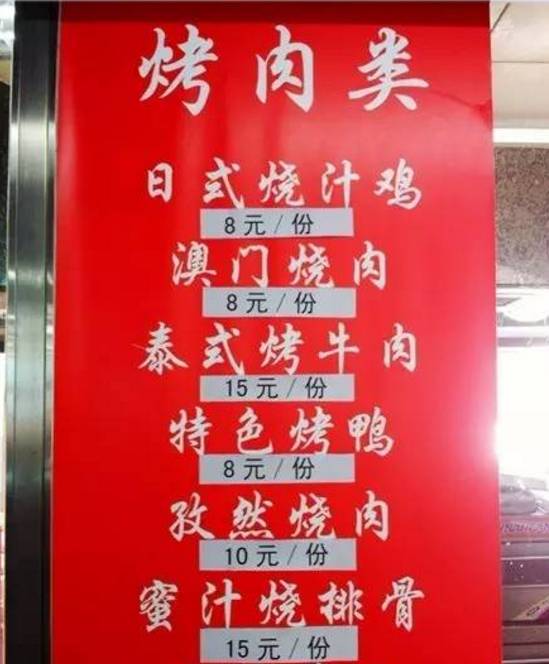 烤肉类
日式烧汁鸡
8元/份
澳门烧肉
8元/份
泰式烤牛肉
15元/份
特色烤鸭
8元/份
孜然烧肉
10元/份
蜜汁烧排骨
15元/份